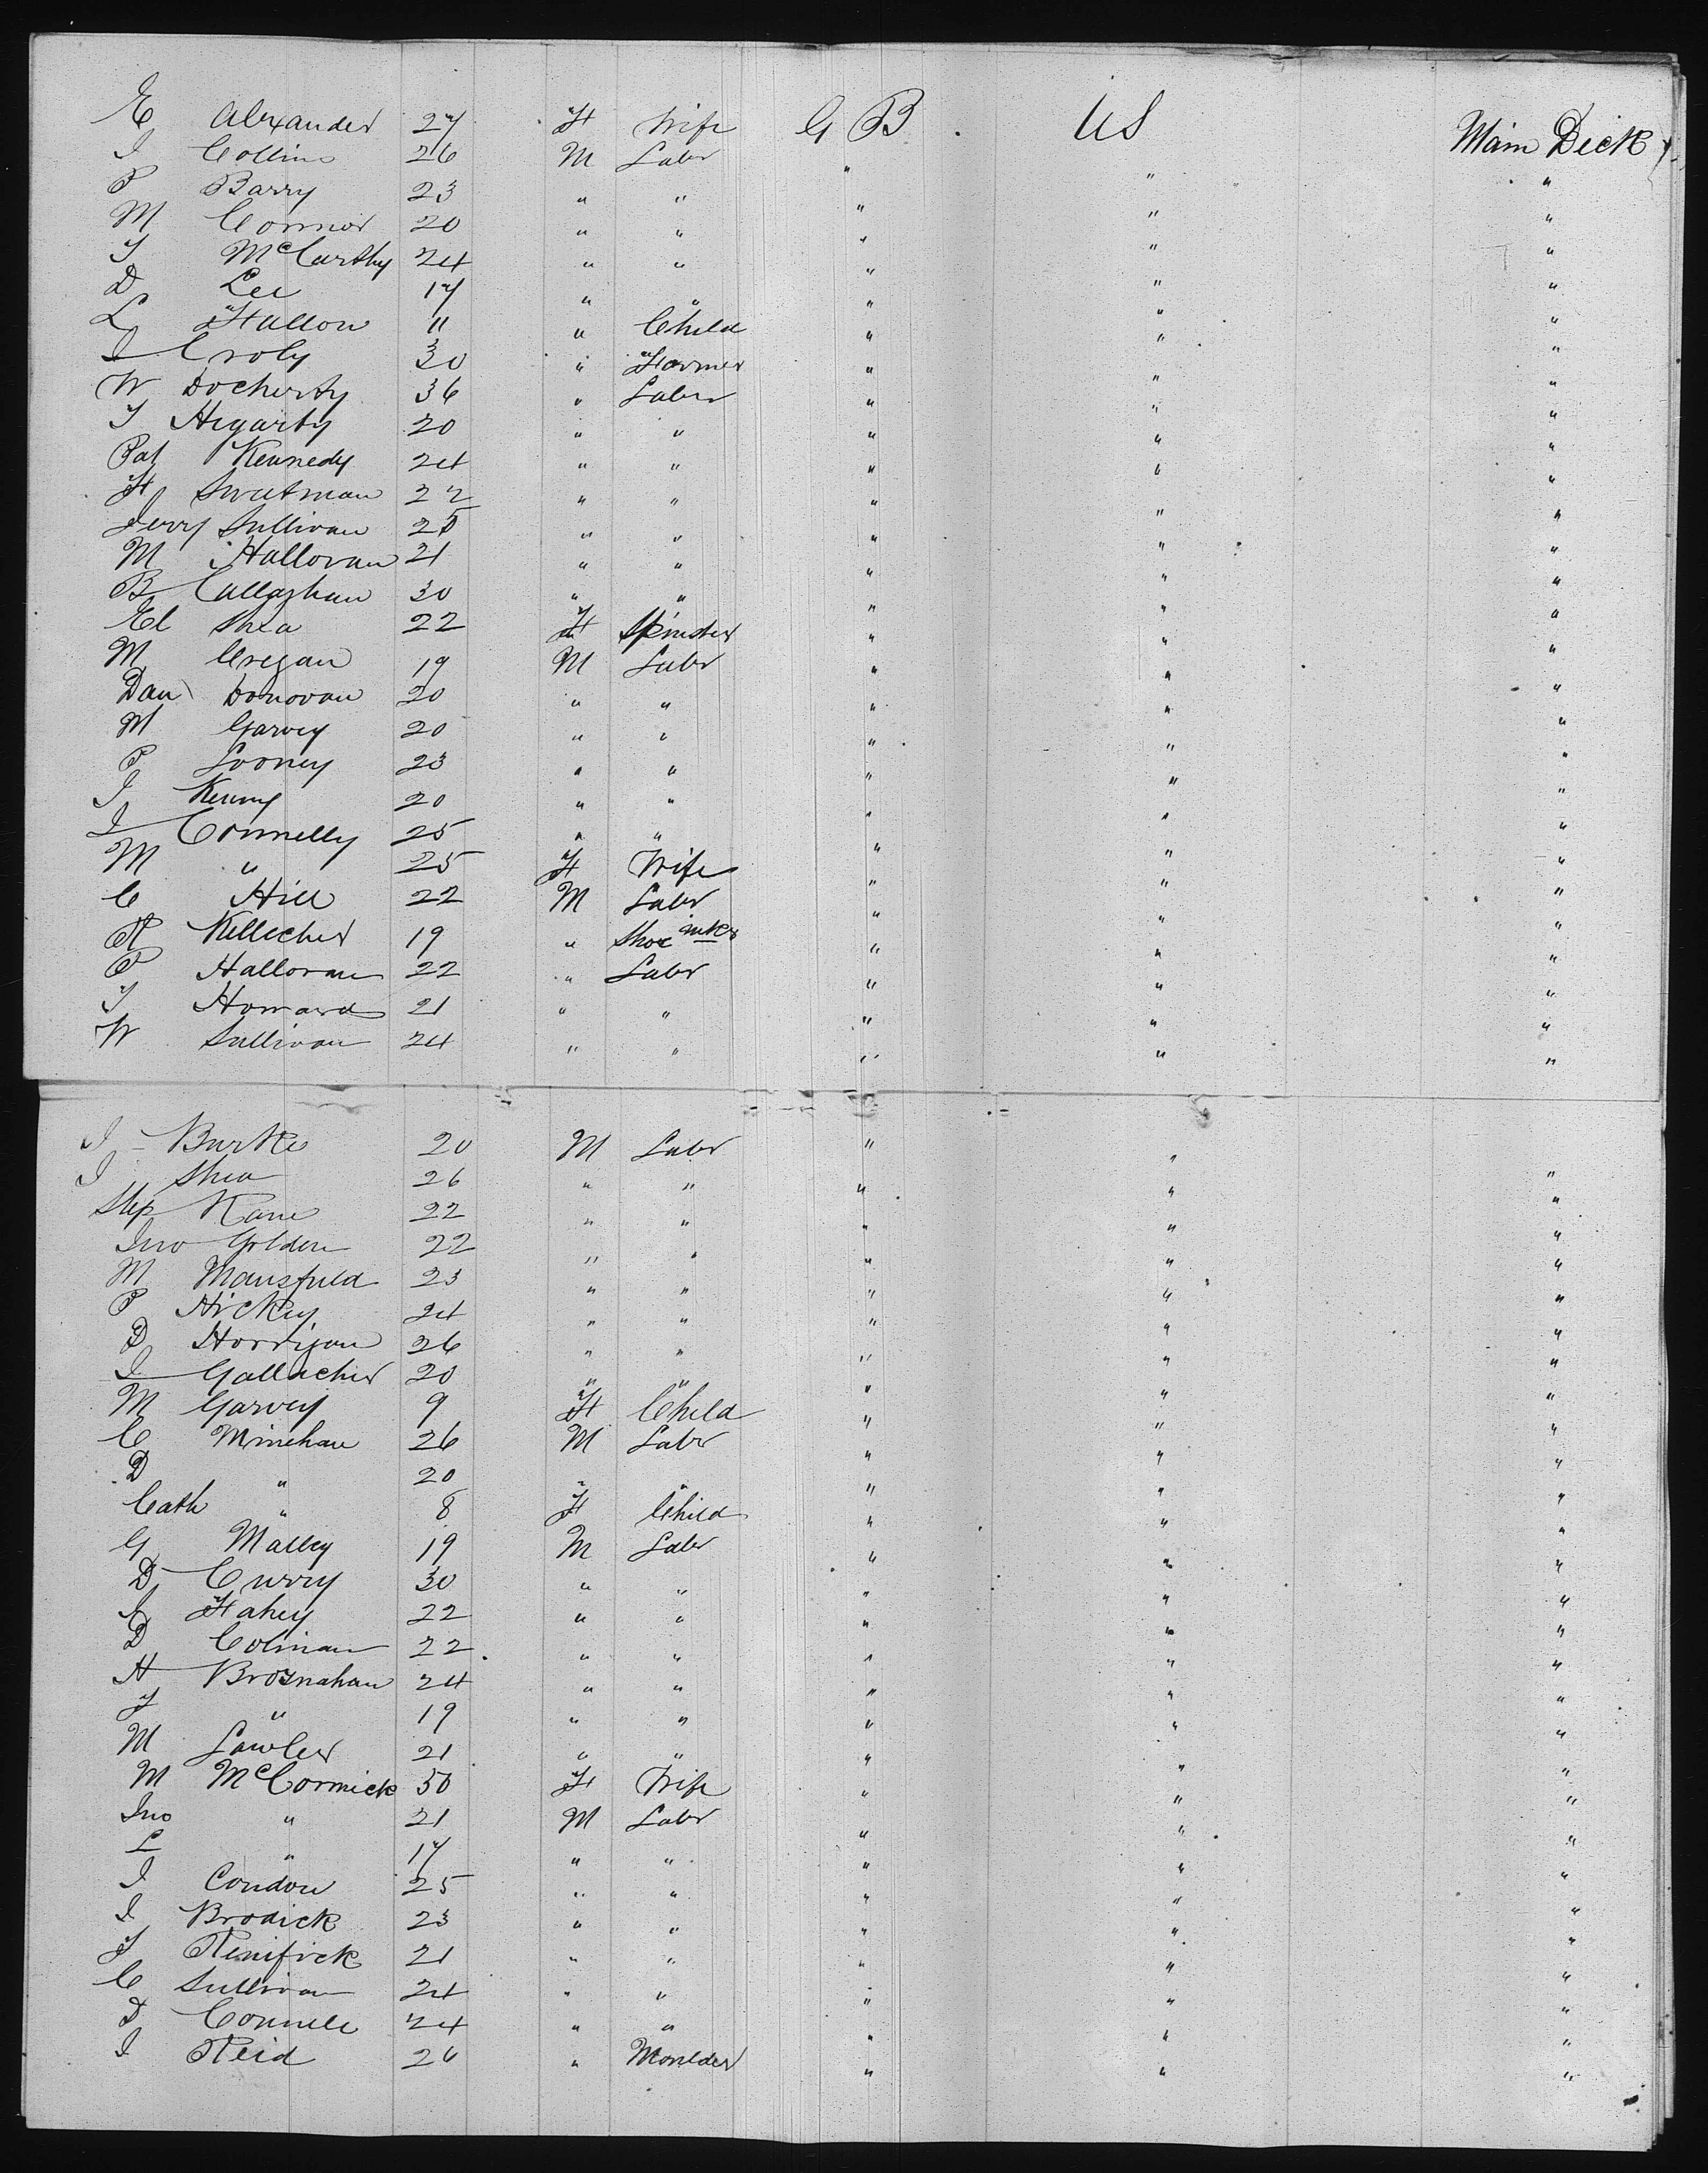 E Alexander 27 F Wife G B. US Main Deck
J Collins 26 M Labr " " "
P Barry 23 " " " " "
M Connor 20 " " " " "
T McCarthy 24 " " " " "
D Lee 17 " " " " "
L Fallon 11 " Child " " "
J Croly 30 " Farmer " " "
W Docherty 36 " Labr " " "
T Hegarty 20 " " " " "
Pat Kennedy 24 " " " " "
F Sweetman 22 " " " " "
Jerry Sullivan 25 " " " " "
M Halloran 21 " " " " "
B Callaghan 30 " " " " "
El Shea 22 F Spinster " " "
M Cregan 19 M Labr " " "
Dan Donovan 20 " " " " "
M Garvey 20 " " " " "
P Looney 23 " " " " "
J Kenny 20 " " " " "
J Connelly 25 " " " " "
M " 25 F Wife " " "
C Hill 22 M Labr " " "
R Kellecher 19 " Shoe mkr " " "
P Halloran 22 " Labr " " "
T Howard 21 " " " " "
W Sullivan 24 " " " " "
J Burke 20 M Labr " " "
J Shea 26 " " " " "
Step Kane 22 " " " " "
Jno Golden 22 " " " " "
M Mansfield 23 " " " " "
P Hickey 24 " " " " "
D Horrigan 26 " " " " "
J Gallacher 20 " " " " "
M Garvey 9 F Child " " "
C Minehan 26 M Labr " " "
D " 20 " " " " "
Cath " 8 F Child " " "
G Malley 19 M Labr " " "
D Curry 30 " " " " "
Fahey 22 " " " " "
D Colman 22 " " " " "
H Brosnahan 24 " " " " "
J " 19 " " " " "
M Lawler 21 " " " " "
M McCormick 50 F Wife " " "
Jno " 21 M Labr " " "
L " 17 " " " " "
J Condon 25 " " " " "
J Brodick 23 " " " " "
T Renifick 21 " " " " "
C Sullivan 24 " " " " "
D Connell 24 " " " " "
J Reid 26 " Moulder " " "